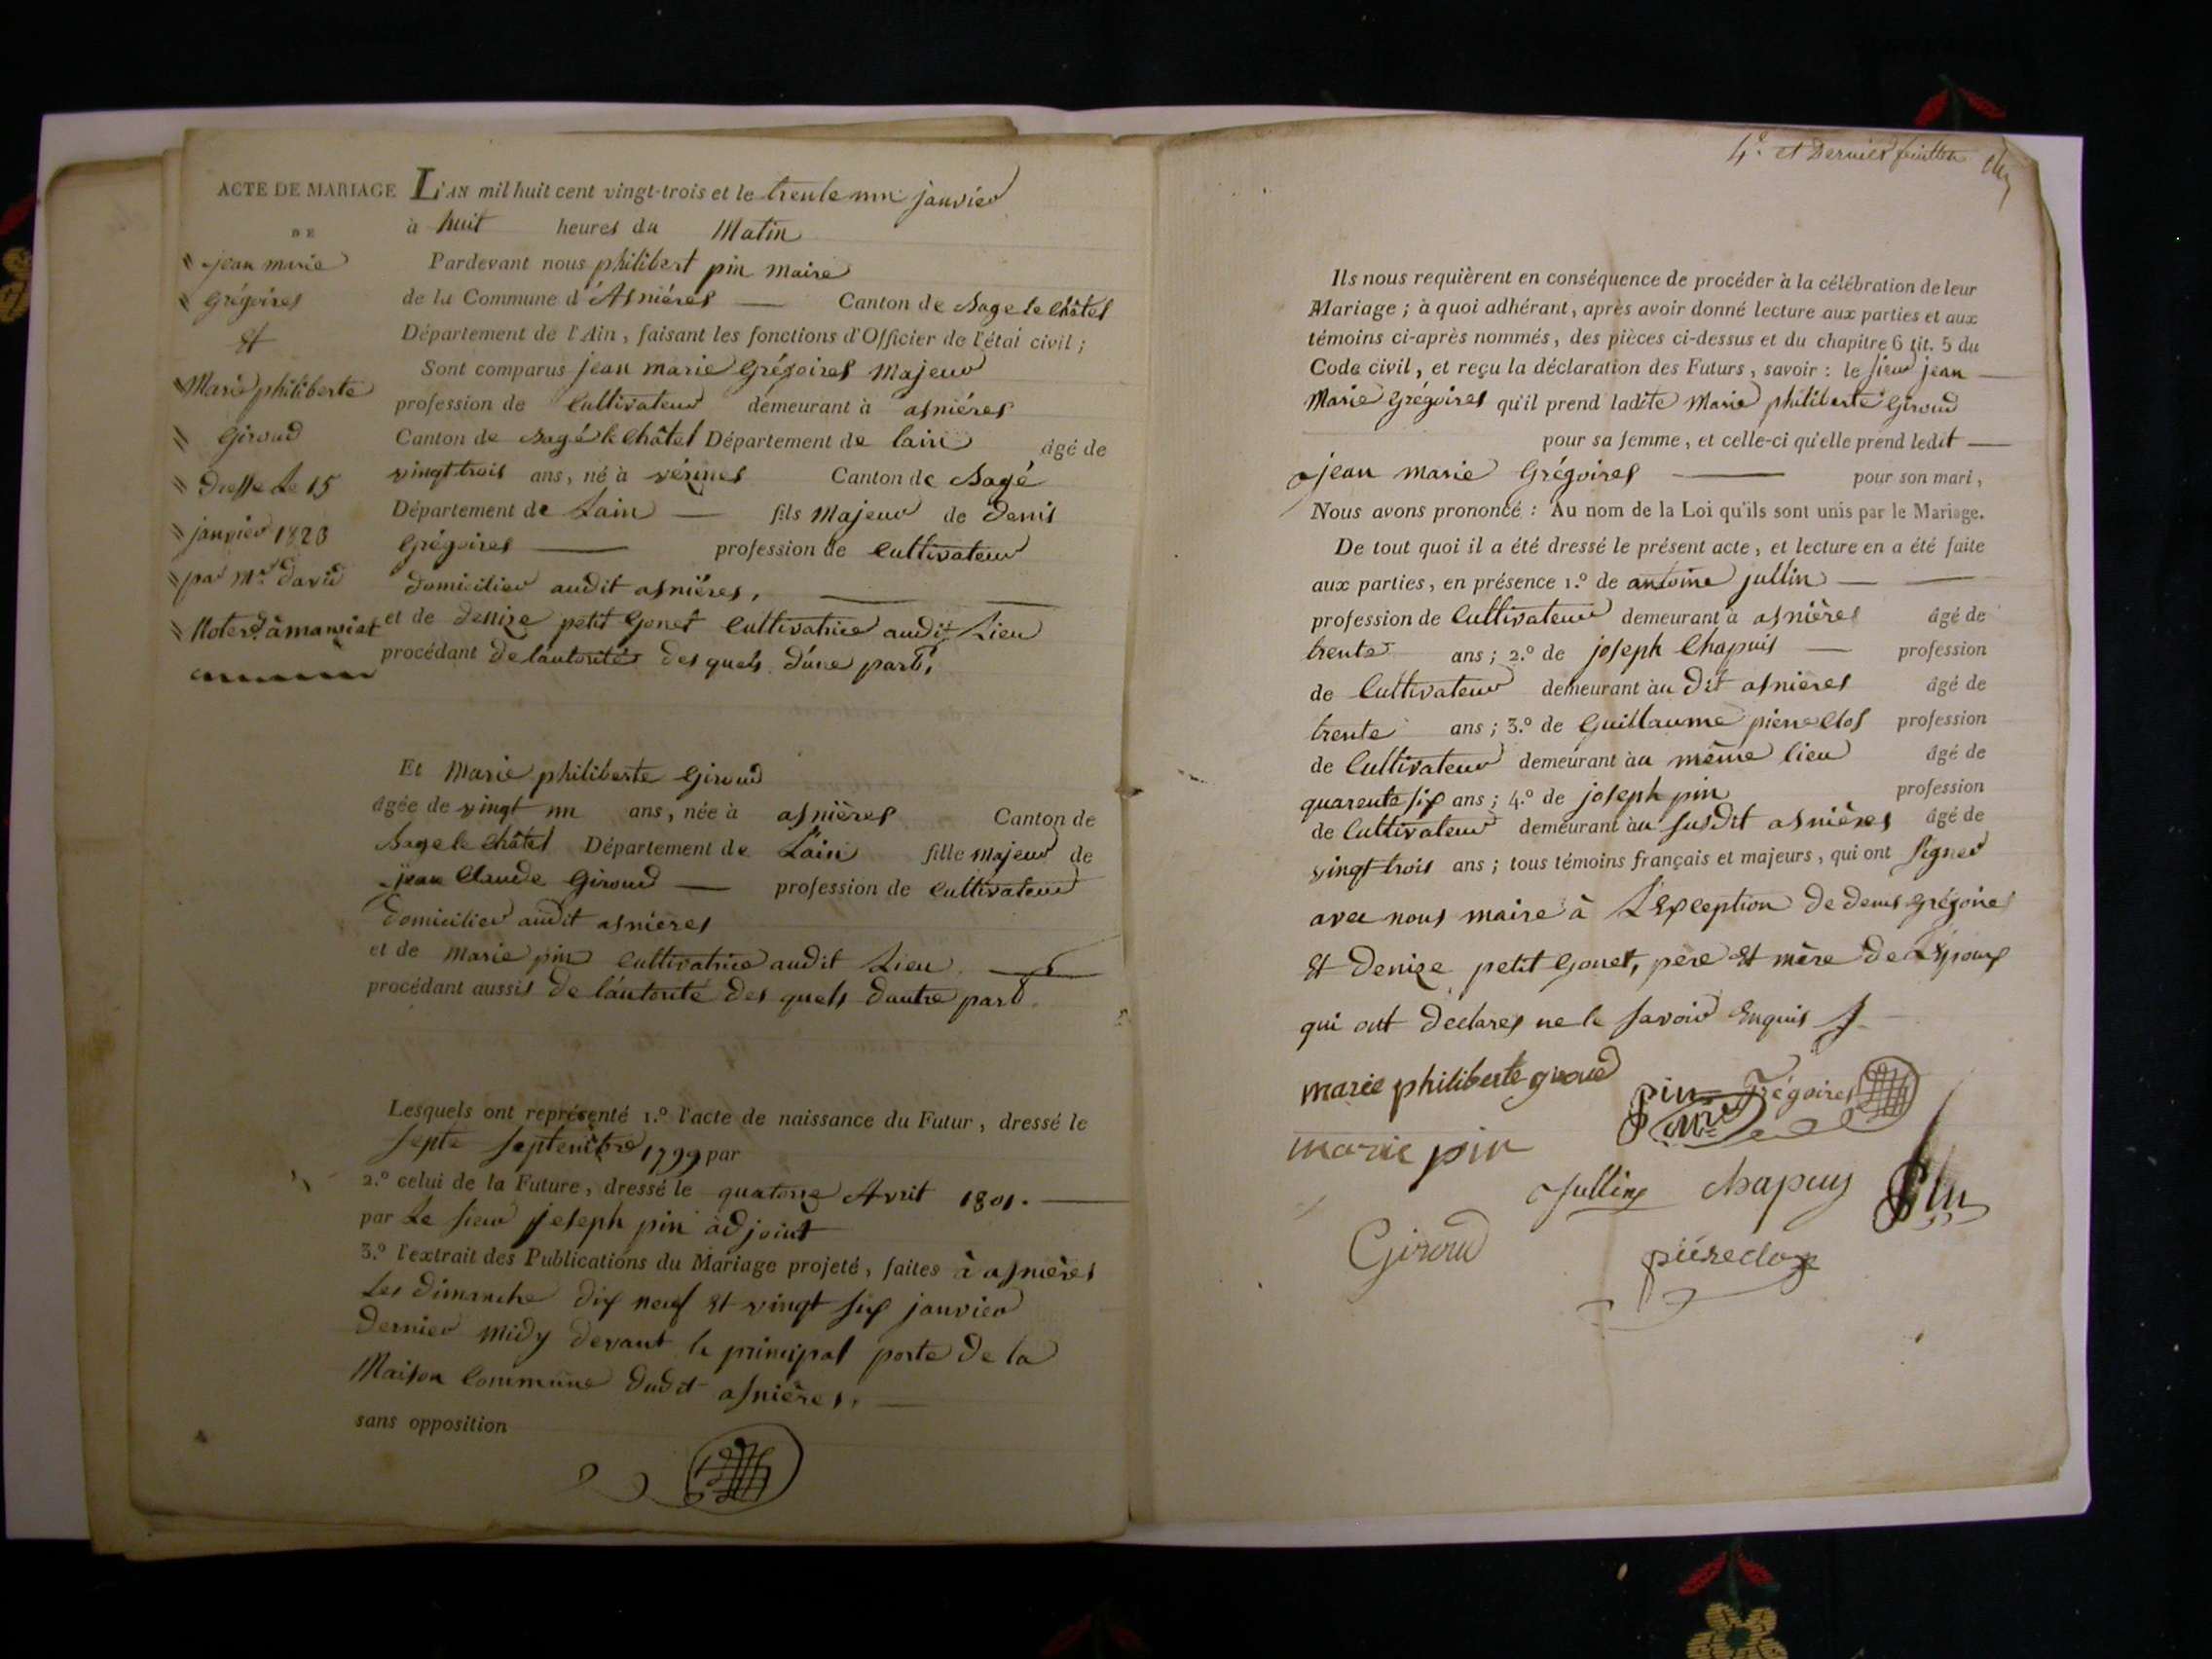 ACTE DE MARIAGE
DE
jean marie
grégoires
Et
Marie philiberte
Giroud
Dresse Le 15
janvier 1823
par Mr. david
Noter. à manziat
L'AN mil huit cent vingt-trois et le trente un janvier
à huit heures du Matin
Pardevant nous philibert pin maire
de la Commune d'Asniéres — Canton de Bage le Châtel
Département de l'Ain, faisant les fonctions d'Officier de l'état civil ;
Sont comparus jean marie Grégoires Majeur
profession de Cultivateur demeurant à asniéres
Canton de Bagé le Châtel Département de lain âgé de
vingt trois ans, né à vésines Canton de Bagé
Département de Lain — fils Majeur de Denis
Grégoires — profession de Cultivateur
Domicilier audit asniéres,
et de Denize petit Gonet Cultivatrice audit Lieu
procédant de lautorités des quels d'une part,
Et Marie philiberte Giroud
âgée de vingt un ans, née à asnières Canton de
Bage le Châtel Département de Lain fille Majeur de
jean Claude Giroud — profession de Cultivateur
Domicilier audit asnieres
et de marie pin Cultivatrice audit Lieu
procédant aussis de lautorité des quels dautre part.
Lesquels ont représenté 1.º l'acte de naissance du Futur, dressé le
septe septembre 1799 par
2.º celui de la Future, dressé le quatorze Avrit 1801. —
par Le sieur joseph pin adjoint
3.º l'extrait des Publications du Mariage projeté, faites à asnières
Les dimanche dix neuf Et vingt six janvier
Dernier midy devant le principal porte de la
Maison Commune dudit asnières, —
sans opposition
4.e et Dernier feuillet
Ils nous requièrent en conséquence de procéder à la célébration de leur
Mariage ; à quoi adhérant, après avoir donné lecture aux parties et aux
témoins ci-après nommés, des pièces ci-dessus et du chapitre 6 tit. 5 du
Code civil, et reçu la déclaration des Futurs, savoir : le sieur jean —
Marie Grégoires qu'il prend ladite Marie philiberte Giroud
pour sa femme, et celle-ci qu'elle prend ledit —
jean marie Grégoires — pour son mari,
Nous avons prononcé : Au nom de la Loi qu'ils sont unis par le Mariage.
De tout quoi il a été dressé le présent acte, et lecture en a été faite
aux parties, en présence 1.º de antoine jullin —
profession de Cultivateur demeurant à asnières âgé de
trente ans ; 2.º de joseph Chapuis — profession
de Cultivateur demeurant àu dit asnieres âgé de
trente ans ; 3.º de Guillaume pierre clos profession
de Cultivateur demeurant àu même lieu âgé de
quarente six ans ; 4.º de joseph pin profession
de Cultivateur demeurant àu susdit asnières âgé de
vingt trois ans ; tous témoins français et majeurs, qui ont signer
avec nous maire à L'Exception de denis grégoires
Et Denize petit Gonet, père Et mère de L'Epoux
qui ont declares ne le savoir Enquis
marie philiberte giroud
pin mre
Grégoires
marie pin
Jullin
chapuy
Pin
Giroud
pierecloz